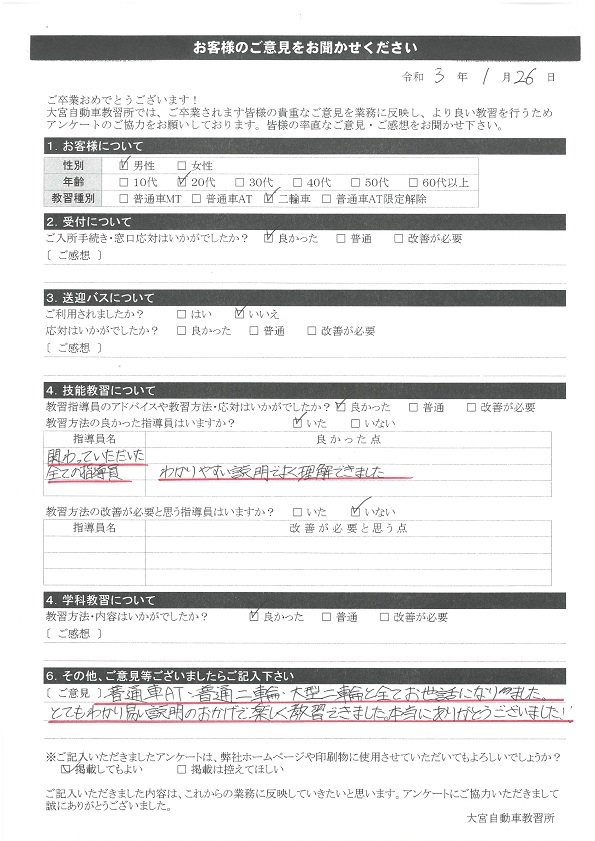 お客様のご意見をお聞かせください
令和 3 年 1 月 26 日
ご卒業おめでとうございます！
大宮自動車教習所では、ご卒業されます皆様の貴重なご意見を業務に反映し、より良い教習を行うため
アンケートのご協力をお願いしております。皆様の率直なご意見・ご感想をお聞かせ下さい。
1. お客様について
性別 ☑ 男性 □ 女性
年齢 □ 10代 ☑ 20代 □ 30代 □ 40代 □ 50代 □ 60代以上
教習種別 □ 普通車MT □ 普通車AT ☑ 二輪車 □ 普通車AT限定解除
2. 受付について
ご入所手続き・窓口応対はいかがでしたか？ ☑ 良かった □ 普通 □ 改善が必要
〔 ご感想 〕
3. 送迎バスについて
ご利用されましたか？ □ はい ☑ いいえ
応対はいかがでしたか？ □ 良かった □ 普通 □ 改善が必要
〔 ご感想 〕
4. 技能教習について
教習指導員のアドバイスや教習方法・応対はいかがでしたか？ ☑ 良かった □ 普通 □ 改善が必要
教習方法の良かった指導員はいますか？ ☑ いた □ いない
指導員名 良かった点
関わっていただいた
全ての指導員 わかりやすい説明でよく理解できました
教習方法の改善が必要と思う指導員はいますか？ □ いた ☑ いない
指導員名 改善が必要と思う点
4. 学科教習について
教習方法・内容はいかがでしたか？ ☑ 良かった □ 普通 □ 改善が必要
〔 ご感想 〕
6. その他、ご意見等ございましたらご記入下さい
〔 ご意見 〕 普通車AT、普通二輪、大型二輪と全てお世話になりました。
とてもわかり易い説明のおかげで楽しく教習できました。本当にありがとうございました！
※ご記入いただきましたアンケートは、弊社ホームページや印刷物に使用させていただいてもよろしいでしょうか？
☑ 掲載してもよい □ 掲載は控えてほしい
ご記入いただきました内容は、これからの業務に反映していきたいと思います。アンケートにご協力いただきまして
誠にありがとうございました。
大宮自動車教習所